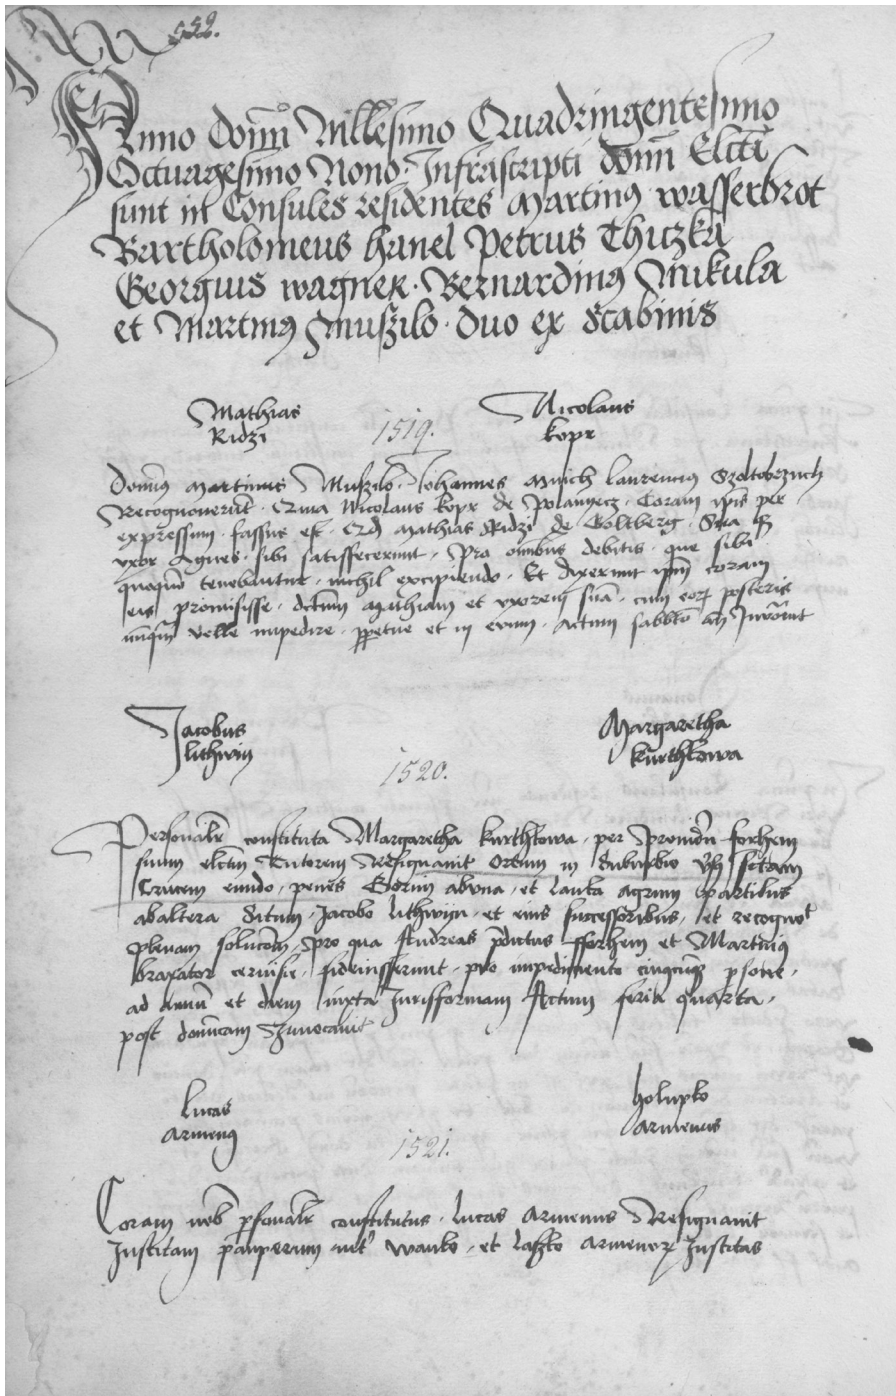 552.
Anno Domi Millesimo Quadringentesimo
Octuagesimo Nono. Infrascripti domi Elcti
sunt in Consules residentes Martinus wasserbrot
Bartholomeus hanel Petrus Thiczka
Georgius wagner. Bernardinus Mikula
et Martinus Muszilo. duo ex Scabinis
Mathias Nicolaus
Ridzi 1519. kopr
Domus Martinus Muszilo. Johannes Laurencius
Recognoverut. Nicolaus kopr de Coram ipis per
expressum. fassus est. Mathias Ridzi de Goltberg. Sua
vxor Agnes. sibi satiffecerunt. Pro omibus debitis. que sibi
tenebantur. nichil excipiendo. Et dixerunt ipm coram
eis promisisse. dctum Mathiam et vxorem sua. cum eor posteris
nuqm velle impedire. ppetue et in evum. Actum sabbto an
Jacobus Margaretha
lithwin 1520. kurthkowa
Personalr constituta Margaretha kurthkowa. per forhem
suum elctum tutorem Resignauit Ortum in Suburbio
Crucem eundo. penes abyna. et lanka agrum partibus
abaltera Situm. Jacobo lithwyn. et eius successoribus. et recognot
plenam solucom. Pro qua Andreas pdictus fforhem et Martinus
braxator ceruisie. fideiusserunt. pro impedimento psone.
ad annu et diem iuxta Jurisformam Actum feria quarta.
post domcam
lucas holupko
Armenus 1521. Armenus
Coram nob psonalr constitutus. lucas Armenus Resignauit
Institam pauperum int wanko. et laszko Armenor Institas